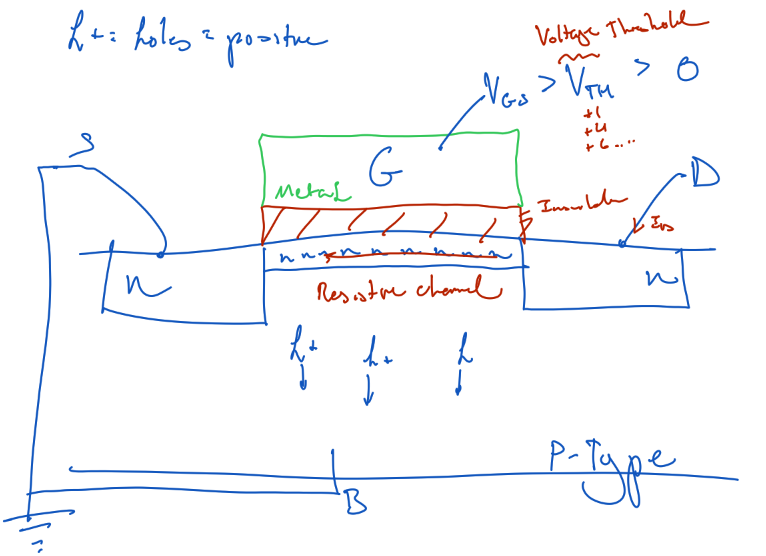 h+ = holes = positive
Voltage Threshold
V_GS > V_TH > 0
+1
+4
+6....
S
G
D
Metal
Insulator
I_DS
n n n n n n n n n
n
n
Resistive channel
h+ h+ h
P-Type
B